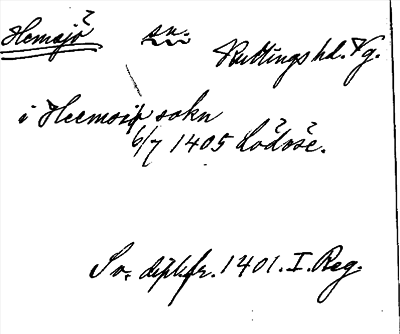 Hemsjö sn.
Kullings hd. Vg.
i Heemsiø sokn
6/7 1405 Lödöse.
Sv. dipl. fr. 1401. I. Reg.